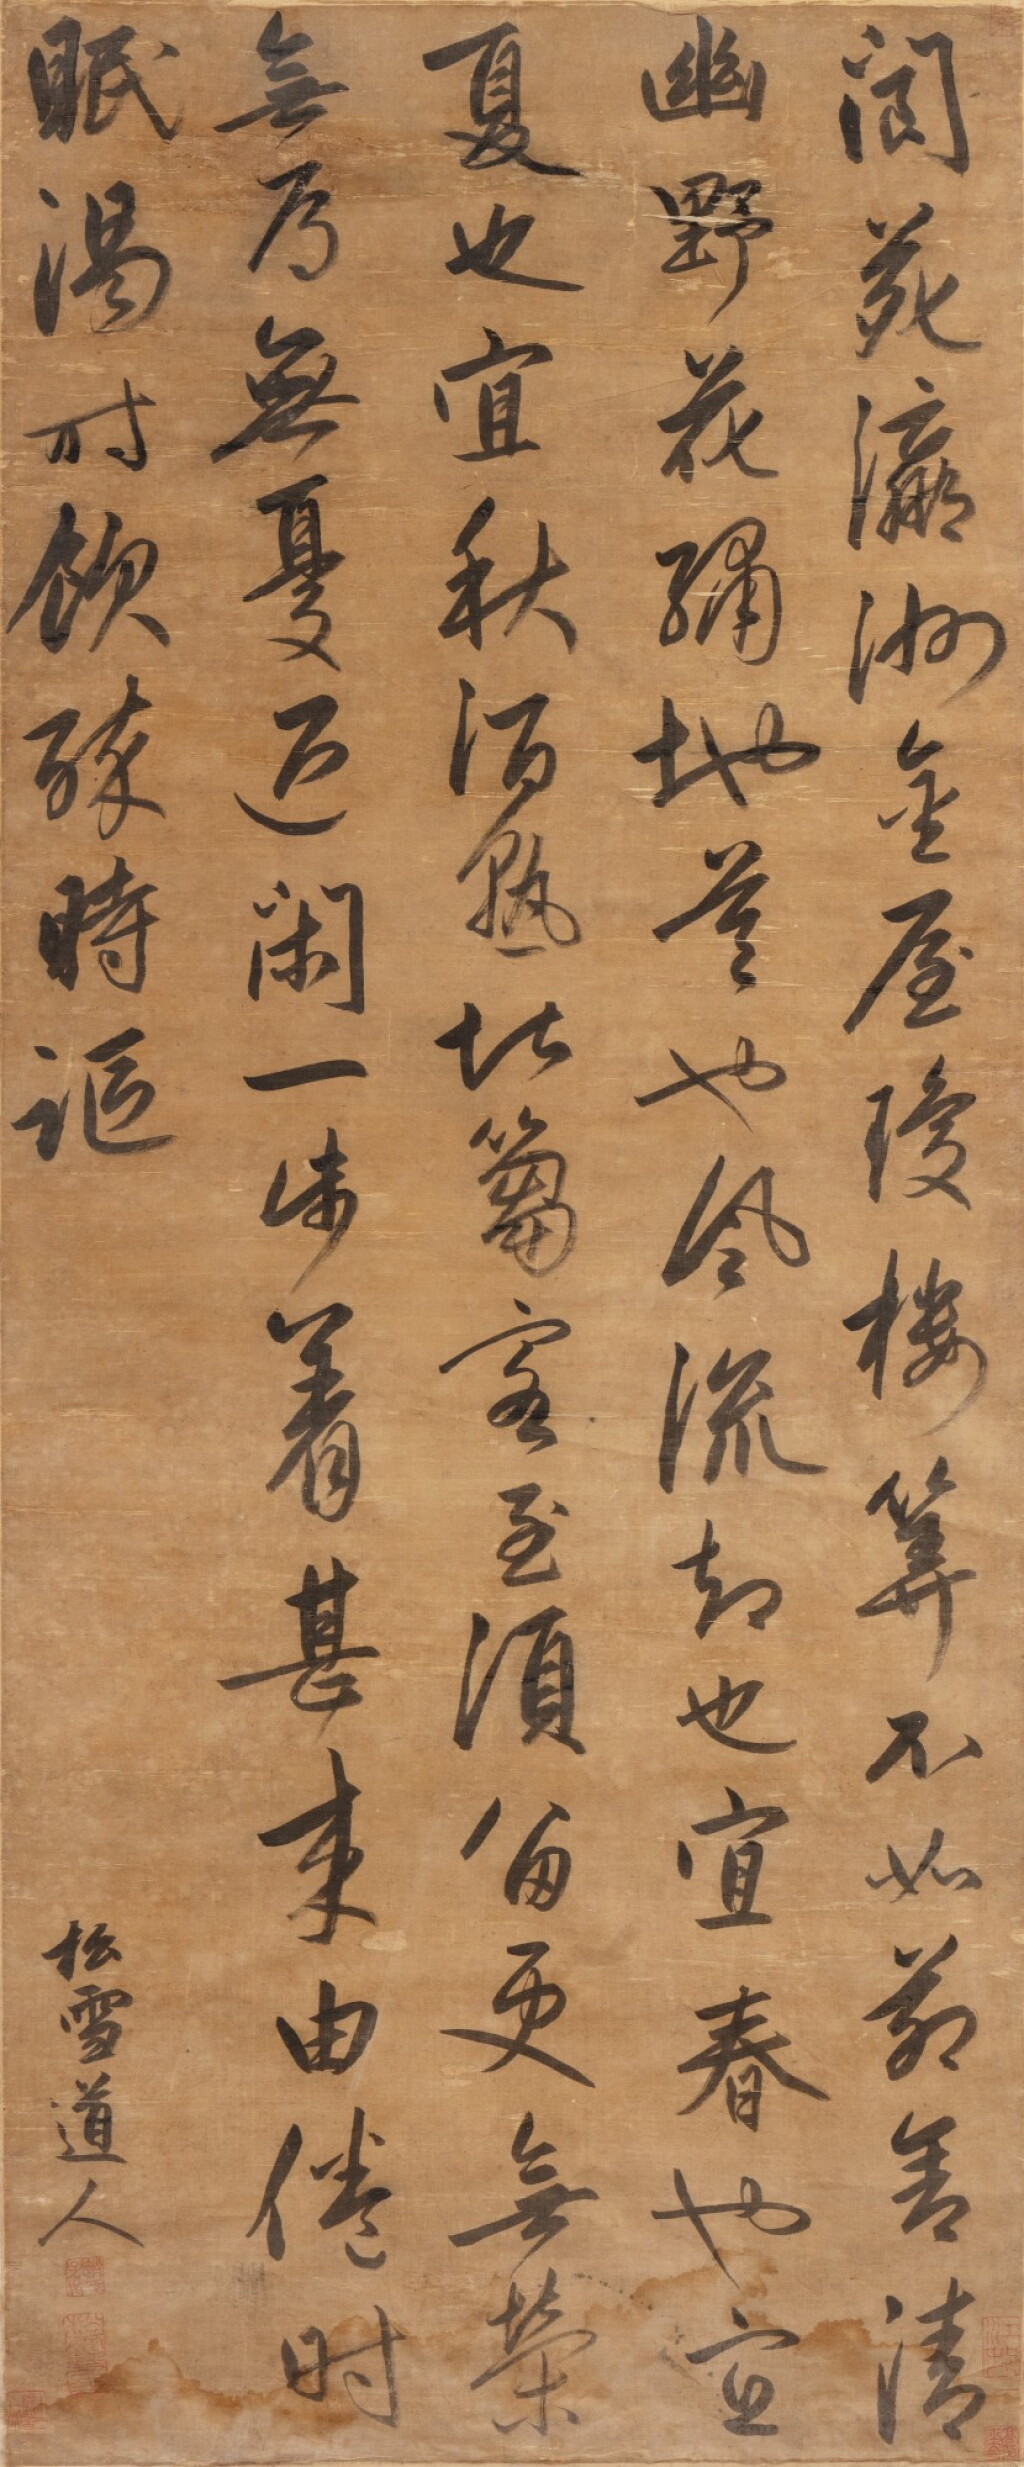 閬苑瀛洲金屋瓊樓算不如茅舍清
幽野花繡地莫也風流却也宜春也宜
夏也宜秋酒熟堪篘客至須留更無榮
無辱無憂退閑一步着甚來由倦時
眠渴时飲醉時謳
松雪道人